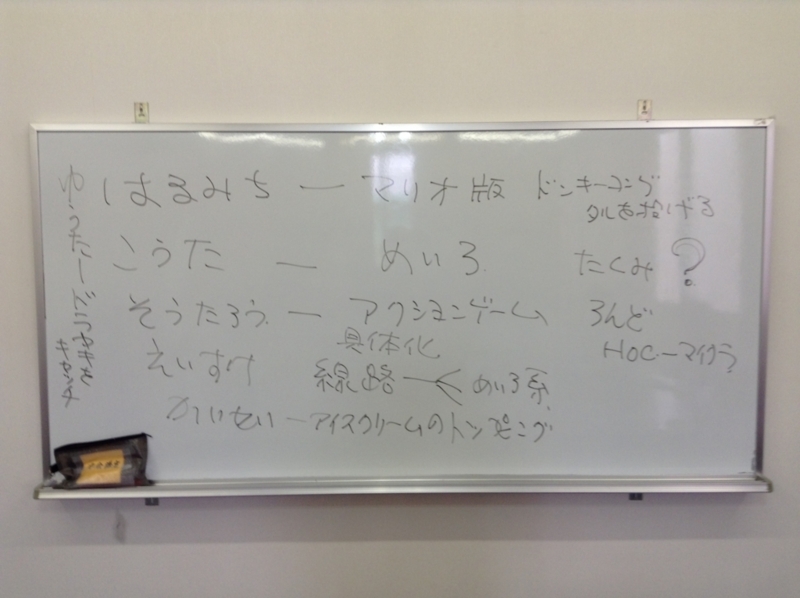 はるみち ー マリオ版 ドンキーコング
タルを投げる
こうた ー めいろ
たくみ ?
そうたろう ー アクションゲーム
具体化
ろんど
HOCーマイクラ
えいすけ 線路 めいろ系
かいせい ー アイスクリームのトッピング
ゆうたー
キャッチ